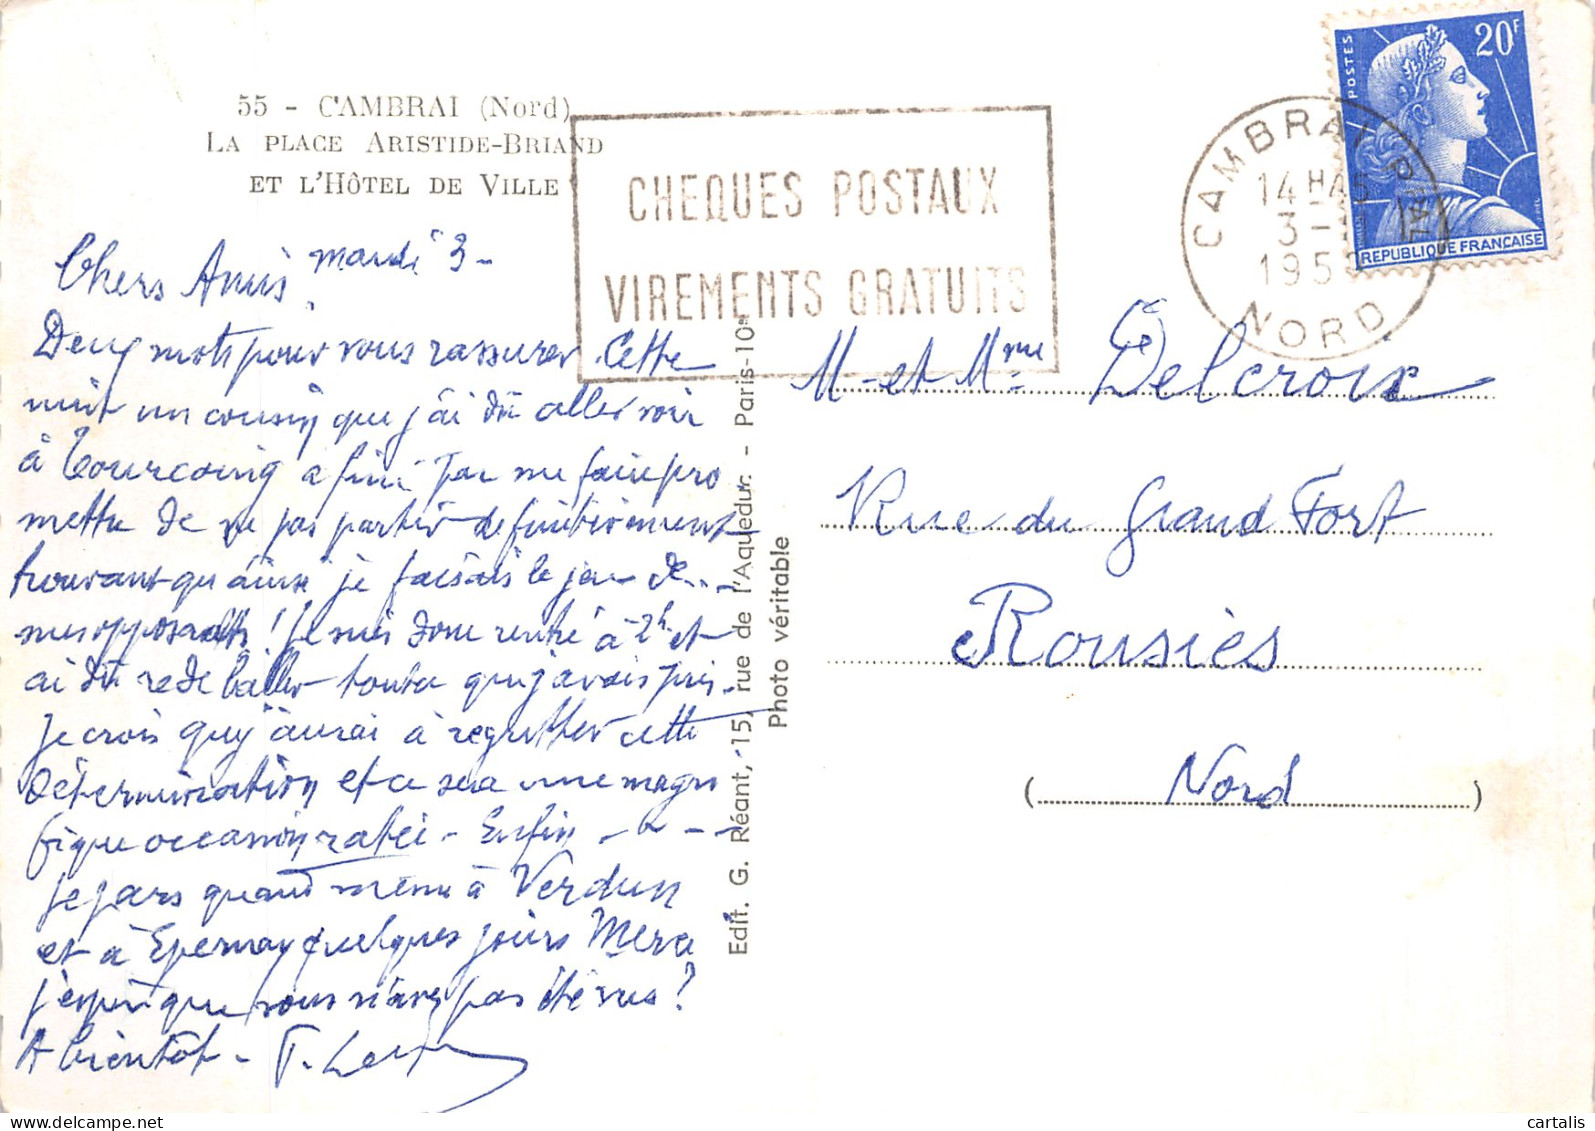 55 - CAMBRAI (Nord)
LA PLACE ARISTIDE-BRIAND
ET L'HÔTEL DE VILLE
CHEQUES POSTAUX
VIREMENTS GRATUITS
CAMBRAI PPAL
14 H 45
3 -
195
NORD
POSTES
20F
REPUBLIQUE FRANÇAISE
mardi 3 -
Chers Amis,
Deux mots pour vous rassurer. Cette
nuit un cousin que j'ai dû aller voir
à Tourcoing a fini par me faire pro
mettre de ne pas partir definitivement
trouvant qu'ainsi je faisais le jeu de ..
mes opposants ! Je suis donc rentré à 2h et
ai dû redeballer toutce que j'avais pris.
Je crois que j'aurai à regretter cette
détermination et ce sera une magni
fique occasion ratée - Enfin - - -
Je pars quand même à Verdun
et à Epernay quelques jours
j'espère que vous n'avez pas été vus ?
A bientôt -
M et Mme Delcroix
Rue du Grand Fort
Rousies
(Nord)
Edit. G. Réant, 15, rue de l'Aqueduc - Paris-10e
Photo véritable
delcampe.net
cartalis